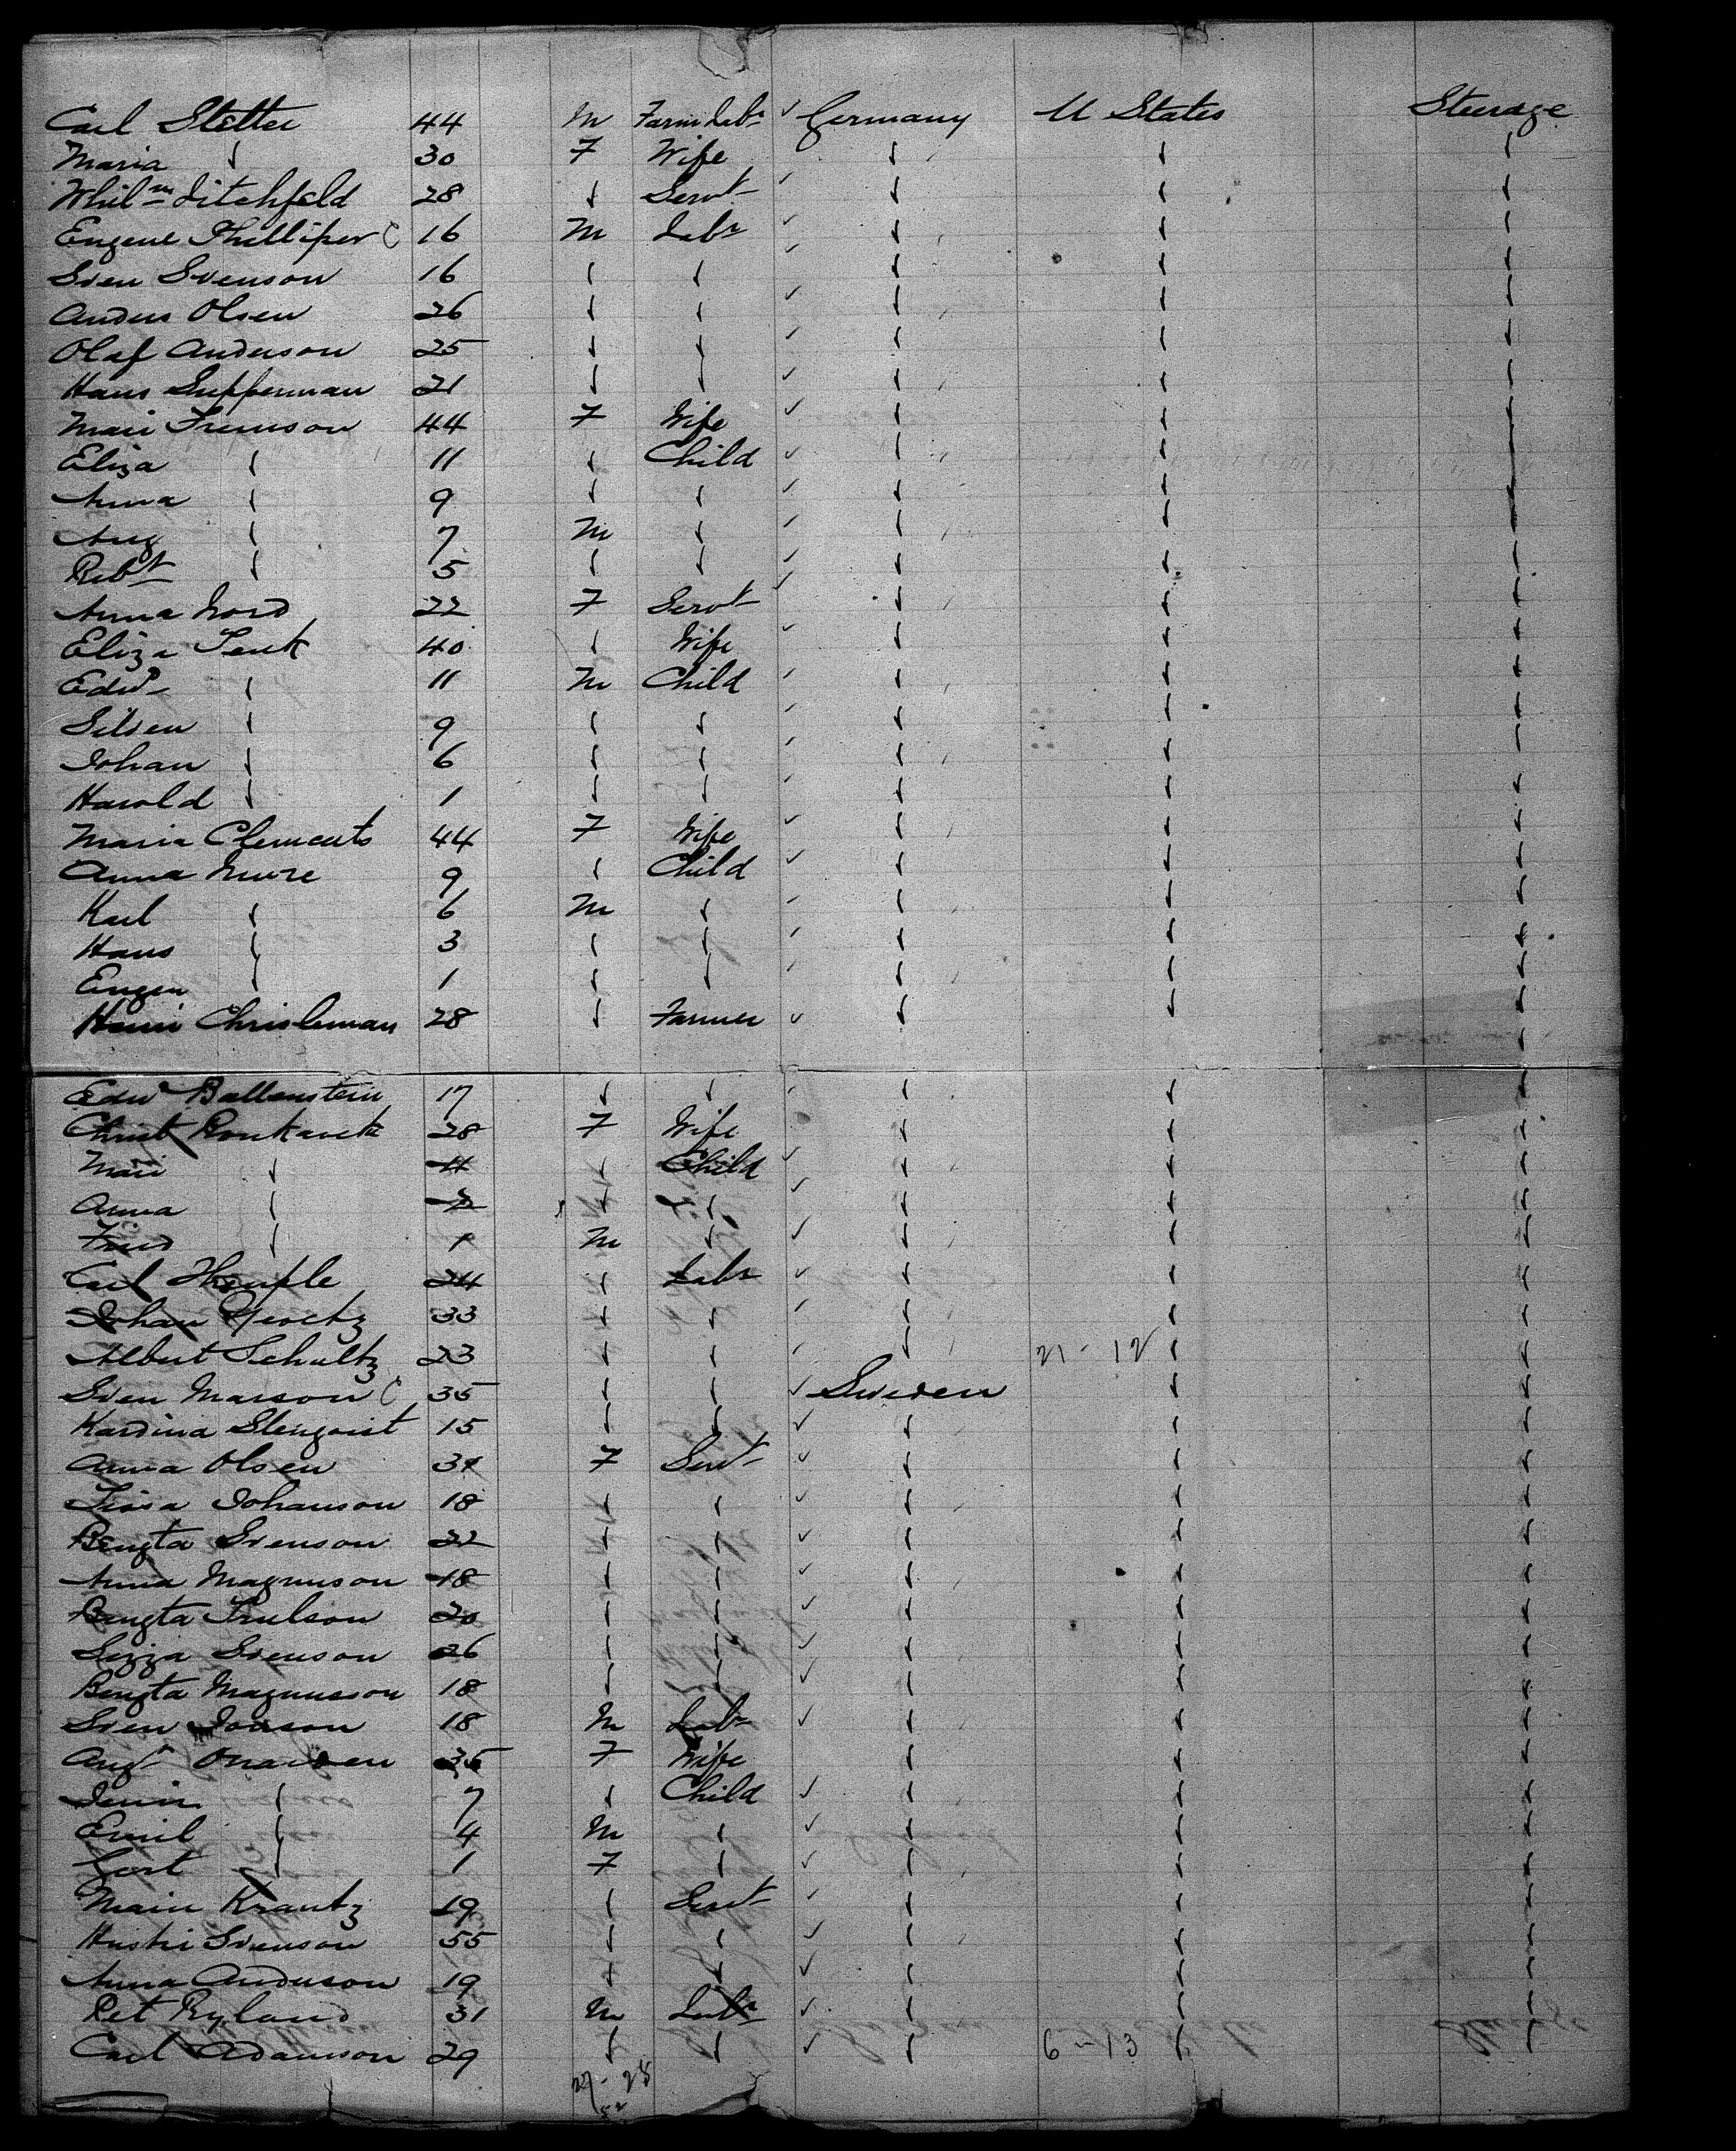 Carl Stetter 44 M Farm Labr ✓ Germany U States Steerage
Maria ✓ 30 F Wife
Whilm Litchfeld 28 ✓ Servt
Eugene Phelliper C 16 M Labr
Sven Svenson 16
Anders Olsen 26
Olaf Anderson 25
Hans Supperman 21
Mari Fremson 44 F Wife
Eliza 11 Child
Anna 9
Aug 7 M
Robt 5
Anna Nord 22 F Servt
Eliza Tenk 40 Wife
Edwd 11 M Child
Silven 9
Johan 6
Harold 1
Maria Clements 44 F Wife
Anna 9 Child
Karl 6 M
Hans 3
Eugen 1
Chrisleman 28 Farmer
Edwd Ballenstein 17
Christ 28 F Wife
Mari Child
Anna
Fried 1 M
Carl 24 Labr
Johan 33
Albert Schultz 23 21 - 12
Sven Marson C 35 Sweden
Kardina Stenqvist 15
Anna Olsen 31 F Servt
Johanson 18
Bengta Svenson 22
Anna Magnuson 18
Bengta Trulson 20
Sizza Svenson 26
Bengta Magnusson 18
Sven Jonson 18 M Labr
Augt 35 F Wife
7 Child
Emil 4 M
1 F
Marie Krantz 19 Servt
Svenson 55
Anna Anderson 19
Pet Ryland 31 M Labr
Carl Adamson 29 6 - 13
27 - 25
52